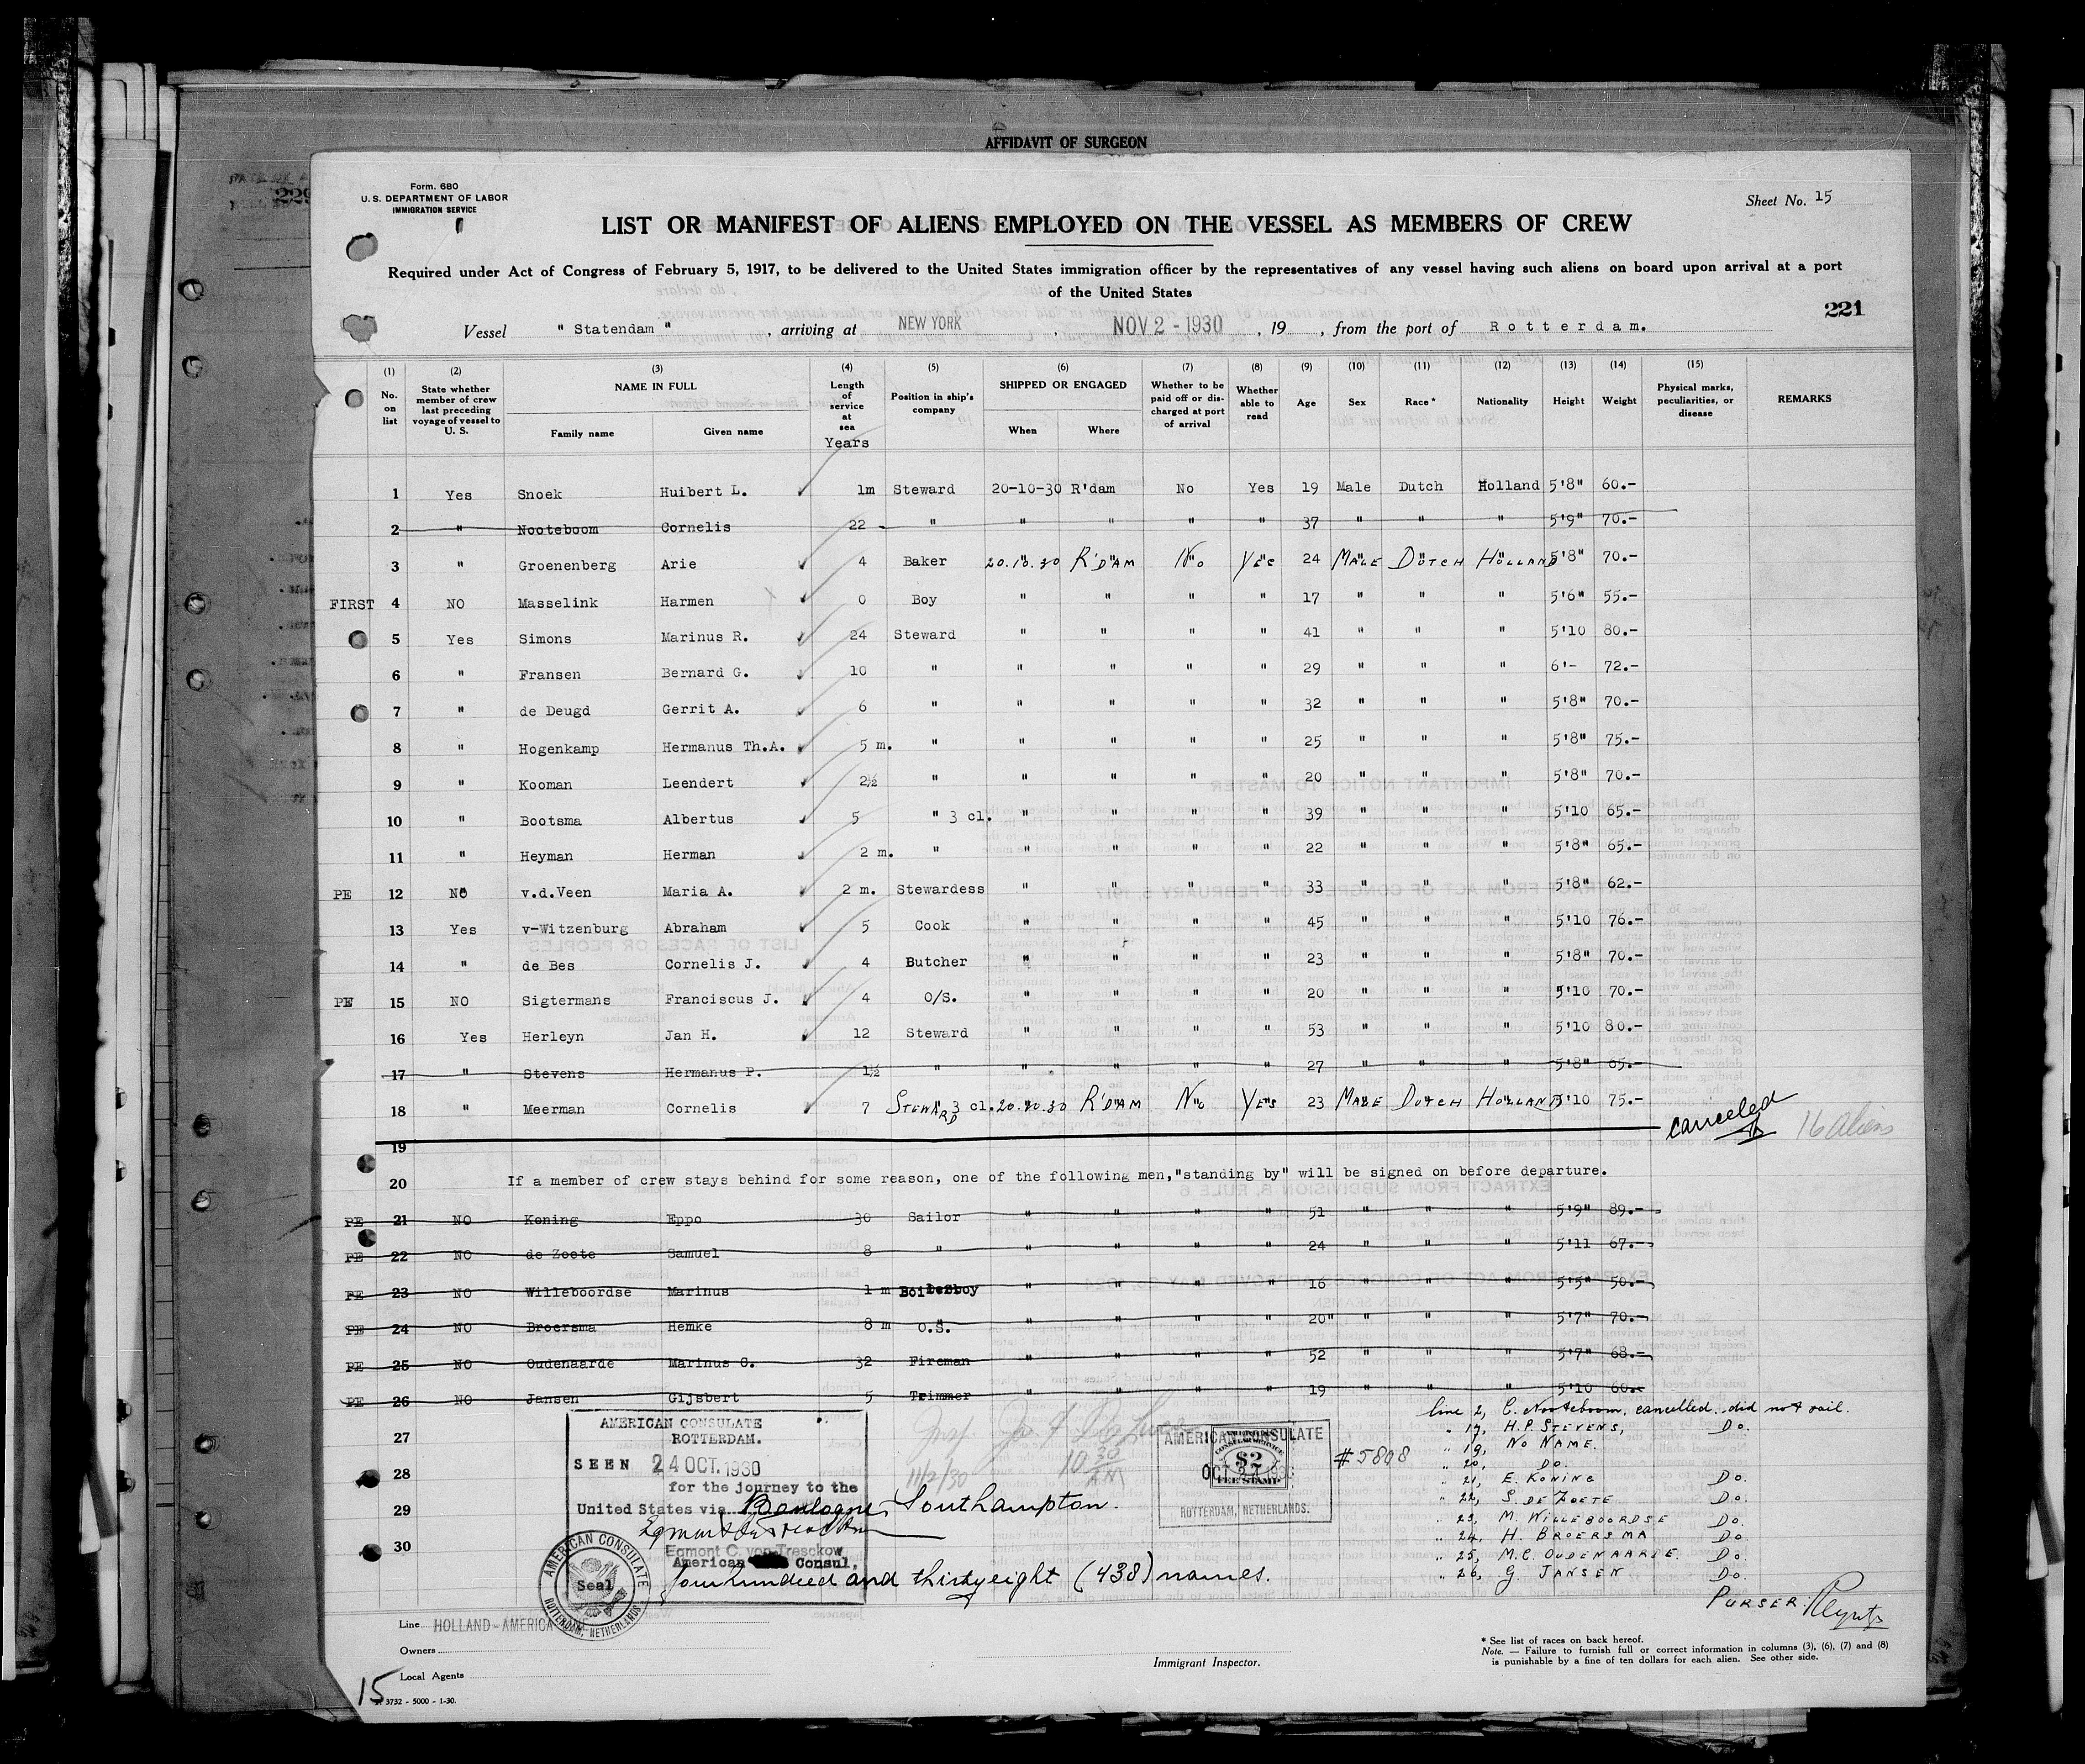 AFFIDAVIT OF SURGEON
Form. 680
U. S. DEPARTMENT OF LABOR
IMMIGRATION SERVICE
Sheet No. 15
LIST OR MANIFEST OF ALIENS EMPLOYED ON THE VESSEL AS MEMBERS OF CREW
Required under Act of Congress of February 5, 1917, to be delivered to the United States immigration officer by the representatives of any vessel having such aliens on board upon arrival at a port
of the United States
221
Vessel " Statendam " , arriving at NEW YORK , NOV 2 - 1930 , 19 , from the port of Rotterdam.
(1) No. on list (2) State whether member of crew last preceding voyage of vessel to U. S. (3) NAME IN FULL Family name Given name (4) Length of service at sea Years (5) Position in ship's company (6) SHIPPED OR ENGAGED When Where (7) Whether to be paid off or discharged at port of arrival (8) Whether able to read (9) Age (10) Sex (11) Race * (12) Nationality (13) Height (14) Weight (15) Physical marks, peculiarities, or disease REMARKS
1 Yes Snoek Huibert L. 1m Steward 20-10-30 R'dam No Yes 19 Male Dutch Holland 5'8" 60.-
2 " Nooteboom Cornelis 22 " " " " " 37 " " " 5'9" 70.-
3 " Groenenberg Arie 4 Baker 20.10.30 R'DAM No YES 24 MALE DUTCH HOLLAND 5'8" 70.-
FIRST 4 NO Masselink Harmen 0 Boy " " " " 17 " " " 5'6" 55.-
5 Yes Simons Marinus R. 24 Steward " " " " 41 " " " 5'10 80.-
6 " Fransen Bernard G. 10 " " " " " 29 " " " 6'- 72.-
7 " de Deugd Gerrit A. 6 " " " " " 32 " " " 5'8" 70.-
8 " Hogenkamp Hermanus Th.A. 5 m. " " " " " 25 " " " 5'8" 75.-
9 " Kooman Leendert 2½ " " " " " 20 " " " 5'8" 70.-
10 " Bootsma Albertus 5 " 3 cl. " " " " 39 " " " 5'10 65.-
11 " Heyman Herman 2 m. " " " " " 22 " " " 5'8" 65.-
PE 12 NO v.d.Veen Maria A. 2 m. Stewardess " " " " 33 " " " 5'8" 62.-
13 Yes v-Witzenburg Abraham 5 Cook " " " " 45 " " " 5'10 76.-
14 " de Bes Cornelis J. 4 Butcher " " " " 23 " " " 5'8" 70.-
PE 15 NO Sigtermans Franciscus J. 4 O/S. " " " " 20 " " " 5'10 70.-
16 Yes Herleyn Jan H. 12 Steward " " " " 53 " " " 5'10 80.-
17 " Stevens Hermanus P. 1½ " " " " " 27 " " " 5'8" 65.-
18 " Meerman Cornelis 7 STEWARD 3 cl. 20.10.30 R'DAM No YES 23 MALE DUTCH HOLLAND 5'10 75.-
canceled 16 aliens
19
20 If a member of crew stays behind for some reason, one of the following men,"standing by" will be signed on before departure.
PE 21 NO Koning Eppo 30 Sailor " " " " 51 " " " 5'9" 89.-
PE 22 NO de Zoete Samuel 8 " " " " " 24 " " " 5'11 67.-
PE 23 NO Willeboordse Marinus 1 m Boilerboy " " " " 16 " " " 5'5" 50.-
PE 24 NO Broersma Hemke 8 m O.S. " " " " 20" " " " 5'7" 70.-
PE 25 NO Oudenaarde Marinus C. 32 Fireman " " " " 52 " " " 5'7" 68.-
PE 26 NO Jansen Gijsbert 5 Trimmer " " " " 19 " " " 5'10 60.-
27
28
29
30
AMERICAN CONSULATE
ROTTERDAM.
SEEN 24 OCT. 1930
for the journey to the
United States via Boulogne, Southampton.
Egmont C. von Tresckow
American Consul.
four hundred and thirty eight (438) names.
AMERICAN CONSULATE
Seal
ROTTERDAM, NETHERLANDS
11/2/30
10 30 AM
AMERICAN CONSULATE
$2
FEE STAMP
OCT 24 1930
ROTTERDAM, NETHERLANDS.
#5808
line 2, C. Nooteboom, cancelled. did not sail.
" 17, H.P. STEVENS, Do.
" 19, NO NAME.
" 20, Do.
" 21, E. KONING Do.
" 22, S. DE ZOETE Do.
" 23, M. WILLEBOORDSE Do.
" 24, H. BROERSMA Do.
" 25, M.C. OUDENAARDE. Do.
" 26, G. JANSEN Do.
PURSER:
Line HOLLAND-AMERICA
Owners
Local Agents
Immigrant Inspector.
* See list of races on back hereof.
Note. — Failure to furnish full or correct information in columns (3), (6), (7) and (8)
is punishable by a fine of ten dollars for each alien. See other side.
15
3732 - 5000 - 1-30.